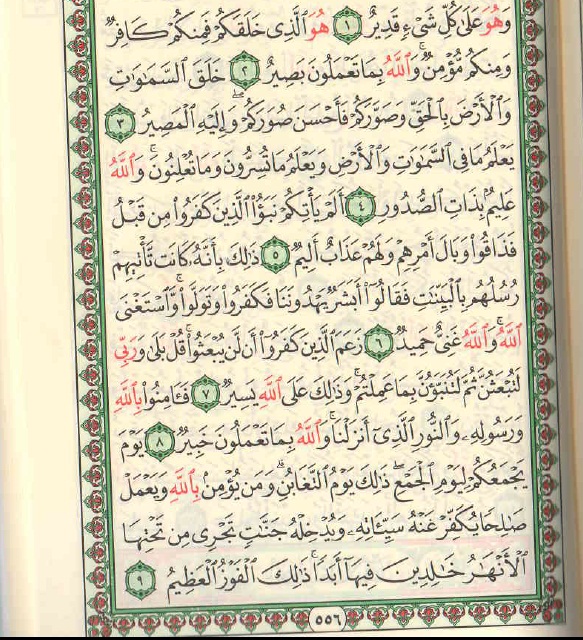 وَهُوَ عَلَىٰ كُلِّ شَىْءٍ قَدِيرٌ ١ هُوَ ٱلَّذِى خَلَقَكُمْ فَمِنكُمْ كَافِرٌ
وَمِنكُم مُّؤْمِنٌ ۚ وَٱللَّهُ بِمَا تَعْمَلُونَ بَصِيرٌ ٢ خَلَقَ ٱلسَّمَـٰوَٰتِ
وَٱلْأَرْضَ بِٱلْحَقِّ وَصَوَّرَكُمْ فَأَحْسَنَ صُوَرَكُمْ ۖ وَإِلَيْهِ ٱلْمَصِيرُ ٣
يَعْلَمُ مَا فِى ٱلسَّمَـٰوَٰتِ وَٱلْأَرْضِ وَيَعْلَمُ مَا تُسِرُّونَ وَمَا تُعْلِنُونَ ۚ وَٱللَّهُ
عَلِيمٌۢ بِذَاتِ ٱلصُّدُورِ ٤ أَلَمْ يَأْتِكُمْ نَبَؤُا۟ ٱلَّذِينَ كَفَرُوا۟ مِن قَبْلُ
فَذَاقُوا۟ وَبَالَ أَمْرِهِمْ وَلَهُمْ عَذَابٌ أَلِيمٌ ٥ ذَٰلِكَ بِأَنَّهُۥ كَانَت تَّأْتِيهِمْ
رُسُلُهُم بِٱلْبَيِّنَـٰتِ فَقَالُوٓا۟ أَبَشَرٌ يَهْدُونَنَا فَكَفَرُوا۟ وَتَوَلَّوا۟ ۚ وَّٱسْتَغْنَى
ٱللَّهُ ۚ وَٱللَّهُ غَنِىٌّ حَمِيدٌ ٦ زَعَمَ ٱلَّذِينَ كَفَرُوٓا۟ أَن لَّن يُبْعَثُوا۟ ۚ قُلْ بَلَىٰ وَرَبِّى
لَتُبْعَثُنَّ ثُمَّ لَتُنَبَّؤُنَّ بِمَا عَمِلْتُمْ ۚ وَذَٰلِكَ عَلَى ٱللَّهِ يَسِيرٌ ٧ فَـَٔامِنُوا۟ بِٱللَّهِ
وَرَسُولِهِۦ وَٱلنُّورِ ٱلَّذِىٓ أَنزَلْنَا ۚ وَٱللَّهُ بِمَا تَعْمَلُونَ خَبِيرٌ ٨ يَوْمَ
يَجْمَعُكُمْ لِيَوْمِ ٱلْجَمْعِ ۖ ذَٰلِكَ يَوْمُ ٱلتَّغَابُنِ ۗ وَمَن يُؤْمِنۢ بِٱللَّهِ وَيَعْمَلْ
صَـٰلِحًا يُكَفِّرْ عَنْهُ سَيِّـَٔاتِهِۦ وَيُدْخِلْهُ جَنَّـٰتٍ تَجْرِى مِن تَحْتِهَا
ٱلْأَنْهَـٰرُ خَـٰلِدِينَ فِيهَآ أَبَدًا ۚ ذَٰلِكَ ٱلْفَوْزُ ٱلْعَظِيمُ ٩
٥٥٦